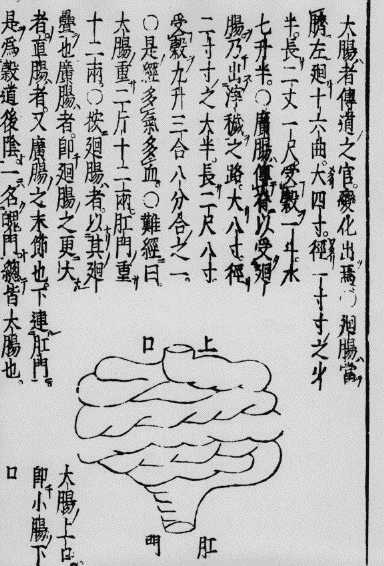 大腸者傳道之官變化出焉○迴腸當
臍左廻十六曲大四寸徑一寸寸之少
半長二丈一尺受穀一斗水
七升半○廣腸傳以受廻
腸乃出滓穢之路大八寸徑
二寸寸之大半長二尺八寸
受穀九升三合八分合之一
○是經多氣多血○難經曰
大腸重二斤十二兩肛門重
十二兩○按廻腸者以其廻
疊也廣腸者即廻腸之更大
者直腸者又廣腸之末節也下連肛門
是為穀道後陰一名魄門總皆大腸也
上口
肛門
大腸上口
即小腸下
口